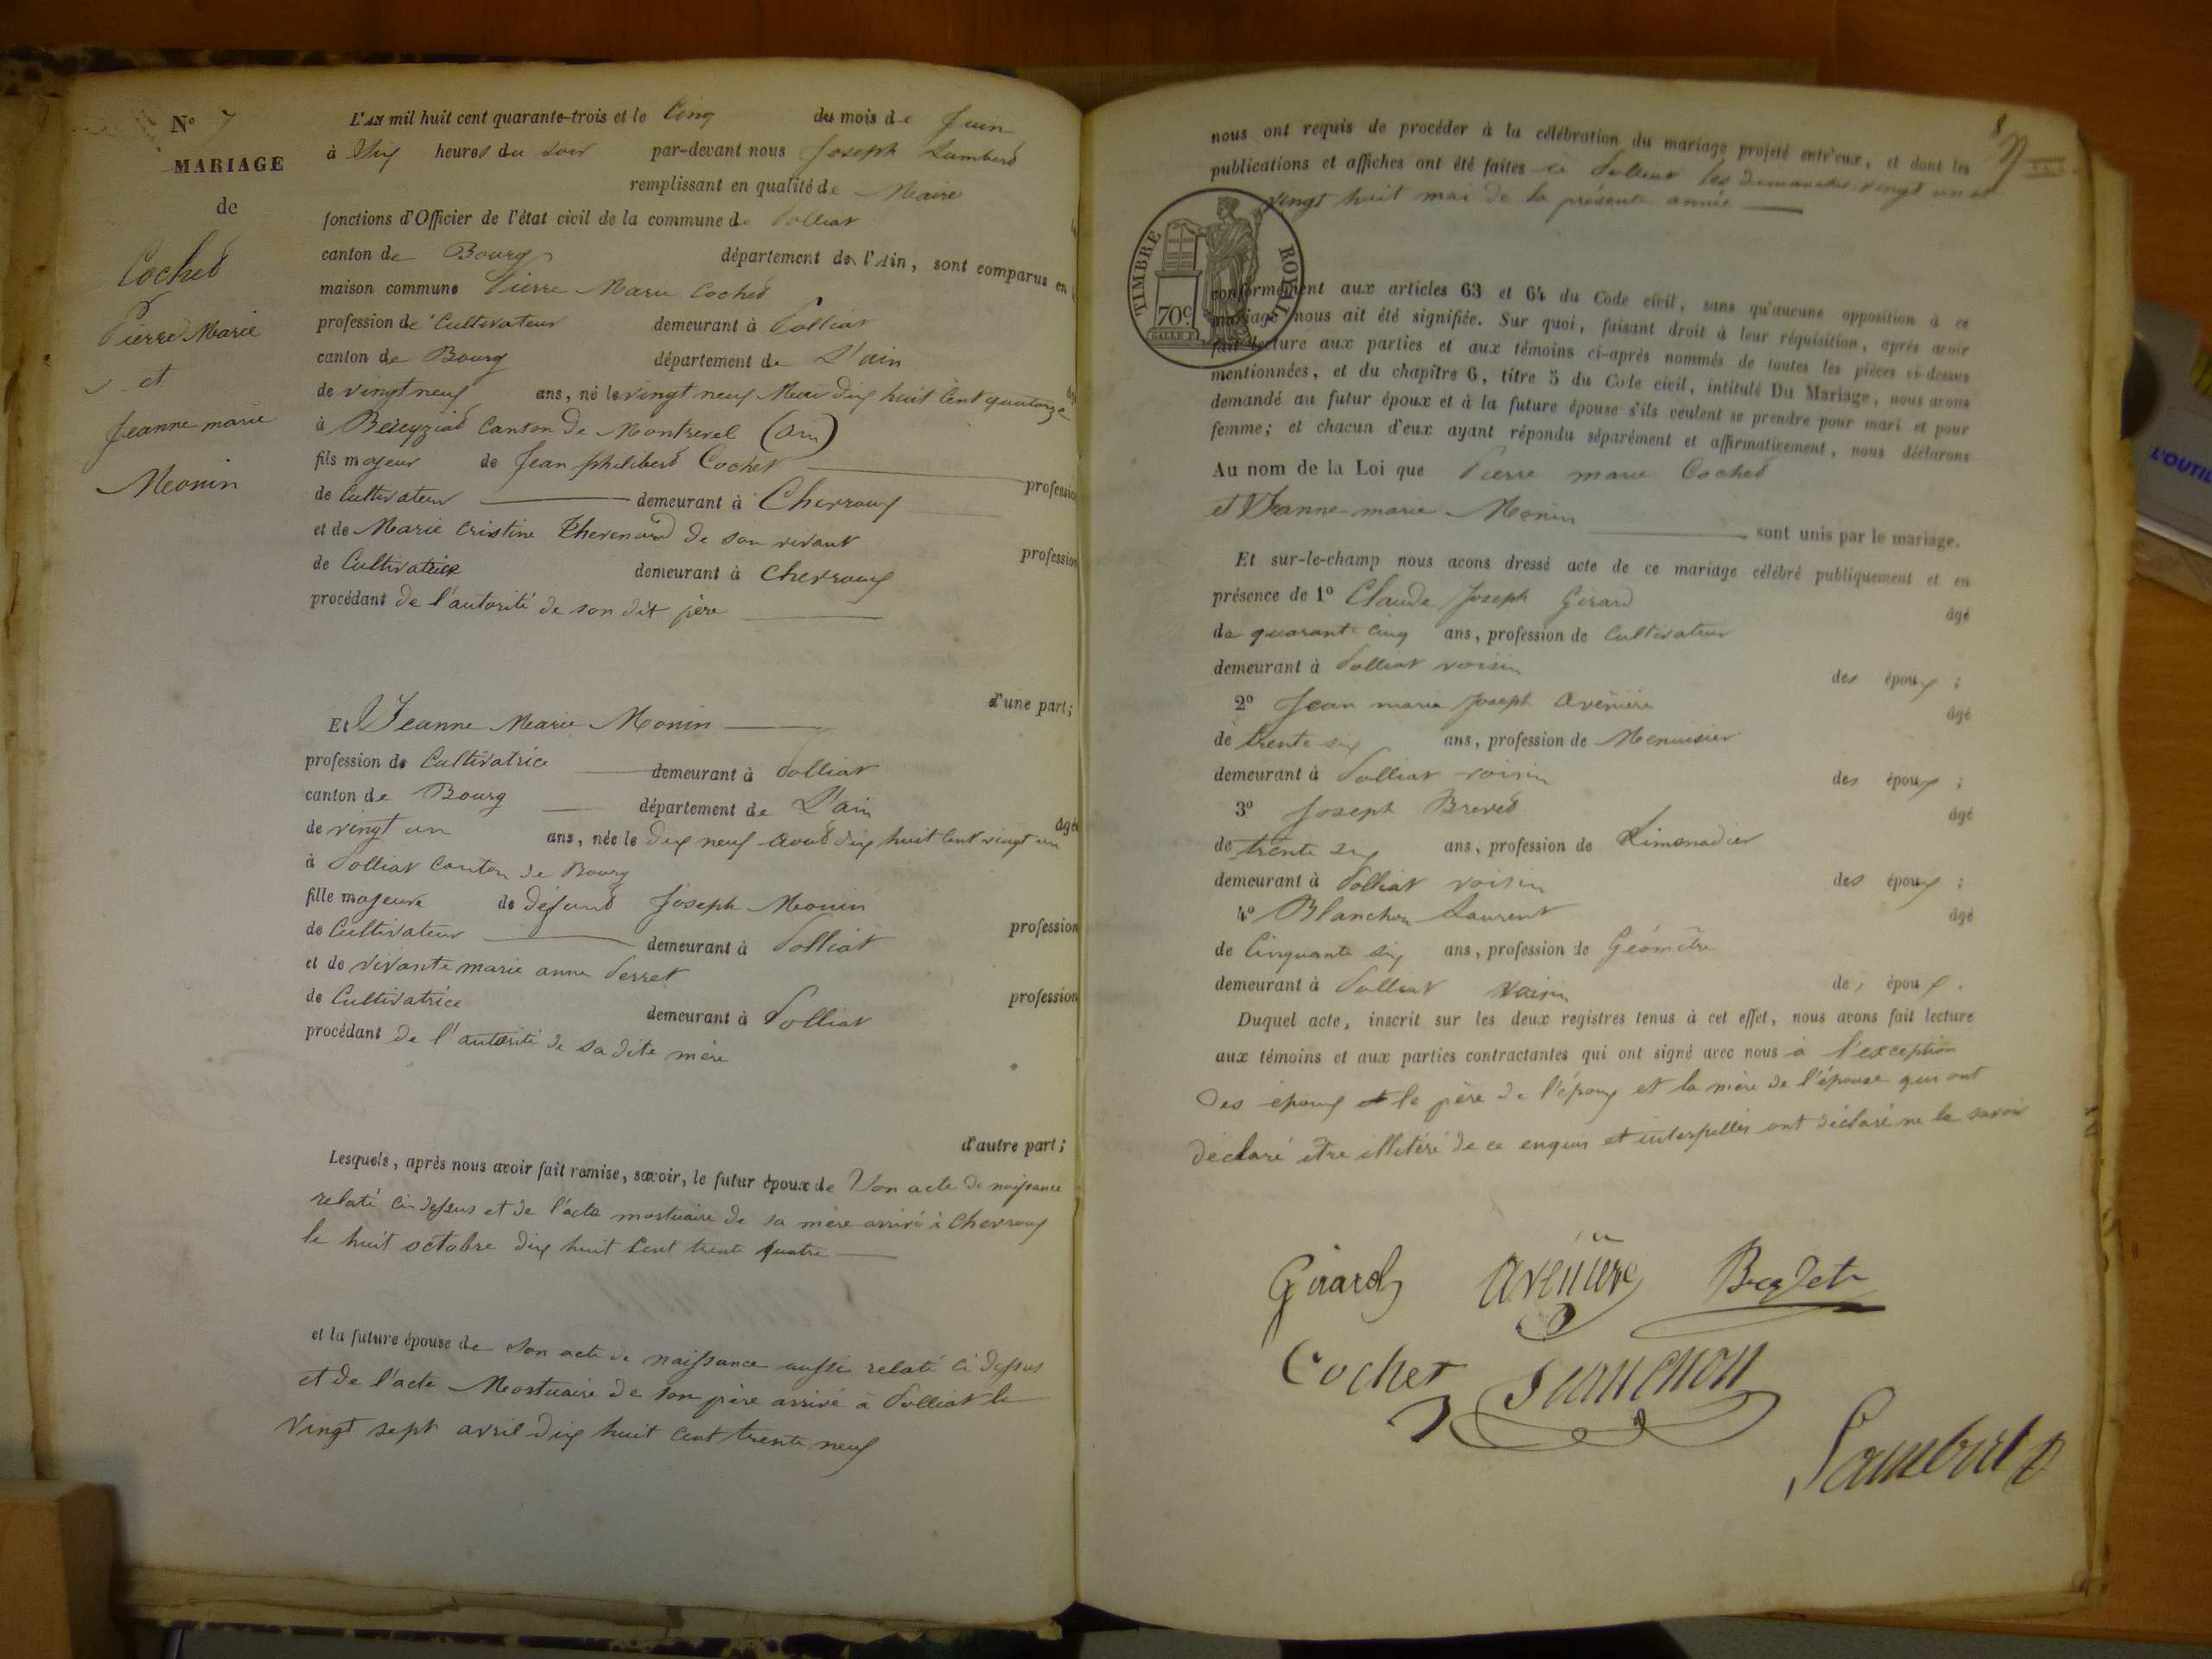 N° 7
MARIAGE
de
Cochet
Pierre Marie
et
Jeanne marie
Monin
L'AN mil huit cent quarante-trois et le Cinq du mois de Juin
à Six heures du soir par-devant nous Joseph Lambert
remplissant en qualité de Maire
fonctions d'Officier de l'état civil de la commune de Polliat
canton de Bourg département de l'Ain, sont comparus en
maison commune Pierre Marie Cochet
profession de Cultivateur demeurant à Polliat
canton de Bourg département de L'ain
de vingt neuf ans, né le vingt neuf Mai dix huit Cent quatorze
à Béreyziat Canton de Montrevel (ain)
fils majeur de Jean philibert Cochet
profession
de Cultivateur demeurant à Chevroux
et de Marie Cristine Thevenard de son vivant
profession
de Cultivatrice demeurant à Chevroux
procédant de l'autorité de son dit père
d'une part;
Et Jeanne Marie Monin
profession de Cultivatrice demeurant à Polliat
canton de Bourg département de L'ain
âgé
de vingt un ans, née le dix neuf Aout dix huit Cent vingt un
à Polliat Canton de Bourg
fille majeure de défunt Joseph Monin
profession
de Cultivateur demeurant à Polliat
et de vivante marie anne Perret
profession
de Cultivatrice demeurant à Polliat
procédant de l'autorité de sa dite mère
d'autre part;
Lesquels, après nous avoir fait remise, savoir, le futur époux de Son acte de naissance
relaté Ci-dessus et de l'acte mortuaire de sa mère arrivé à Chevroux
le huit octobre dix huit Cent trente quatre
et la future épouse de Son acte de naissance aussi relaté Ci dessus
et de l'acte Mortuaire de son père arrivé à Polliat le
Vingt sept avril dix huit Cent trente neuf
8
nous ont requis de procéder à la célébration du mariage projeté entr'eux, et dont les
publications et affiches ont été faites à Polliat les dimanches vingt un et
vingt huit mai de la présente année
TIMBRE ROYAL
70c
conformément aux articles 63 et 64 du Code civil, sans qu'aucune opposition à ce
mariage nous ait été signifiée. Sur quoi, faisant droit à leur réquisition, après avoir
fait lecture aux parties et aux témoins ci-après nommés de toutes les pièces ci-dessus
mentionnées, et du chapitre 6, titre 5 du Code civil, intitulé Du Mariage, nous avons
demandé au futur époux et à la future épouse s'ils veulent se prendre pour mari et pour
femme; et chacun d'eux ayant répondu séparément et affirmativement, nous déclarons
Au nom de la Loi que Pierre marie Cochet
et Jeanne marie Monin sont unis par le mariage.
Et sur-le-champ nous avons dressé acte de ce mariage célébré publiquement et en
présence de 1° Claude Joseph Girard âgé
de quarante Cinq ans, profession de Cultivateur
demeurant à Polliat voisin des époux;
2° Jean marie Joseph Avenière âgé
de trente six ans, profession de Menuisier
demeurant à Polliat voisin des époux;
3° Joseph Brevet âgé
de trente six ans, profession de Limonadier
demeurant à Polliat voisin des époux;
4° Blanchon Laurent âgé
de Cinquante six ans, profession de Géomètre
demeurant à Polliat voisin des époux.
Duquel acte, inscrit sur les deux registres tenus à cet effet, nous avons fait lecture
aux témoins et aux parties contractantes qui ont signé avec nous à l'exception
des époux et le père de l'époux et la mère de l'épouse qui ont
déclaré être illitéré de ce enquis et interpellés ont déclaré ne le savoir
Girard Avenière
Cochet
Lambert